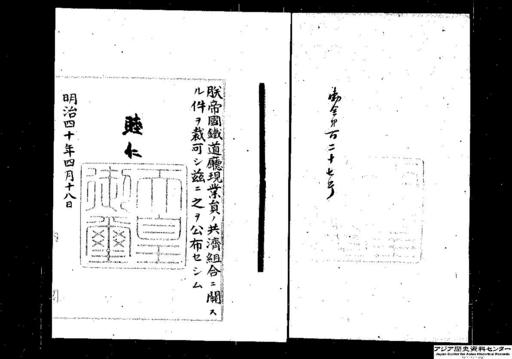 勅令第百二十七号
朕帝國鐵道廳現業員ノ共濟組合ニ關ス
ル件ヲ裁可シ茲ニ之ヲ公布セシム
睦仁
天皇御璽
明治四十年四月十八日
アジア歴史資料センター
Japan Center for Asian Historical Records